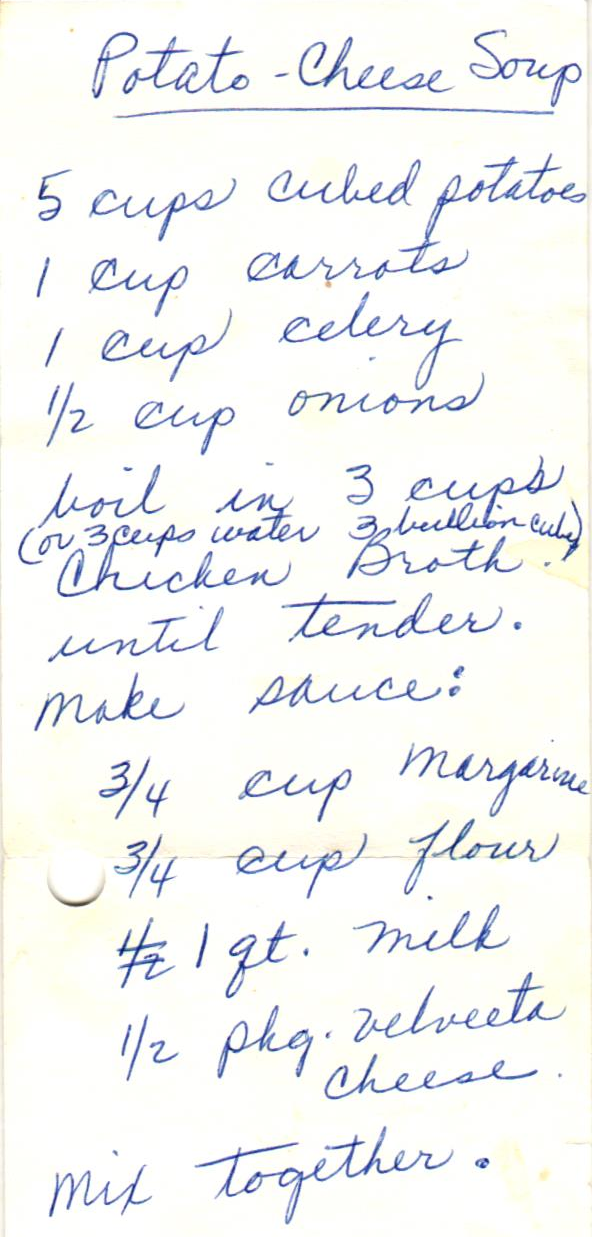 Potato-Cheese Soup
5 cups cubed potatoes
1 cup carrots
1 cup celery
1/2 cup onions
boil in 3 cups
(or 3 cups water 3 bullion cubes)
Chicken Broth.
until tender.
Make sauce:
3/4 cup Margarine
3/4 cup flour
1/2 1 qt. milk
1/2 pkg. velveeta
cheese.
Mix together.